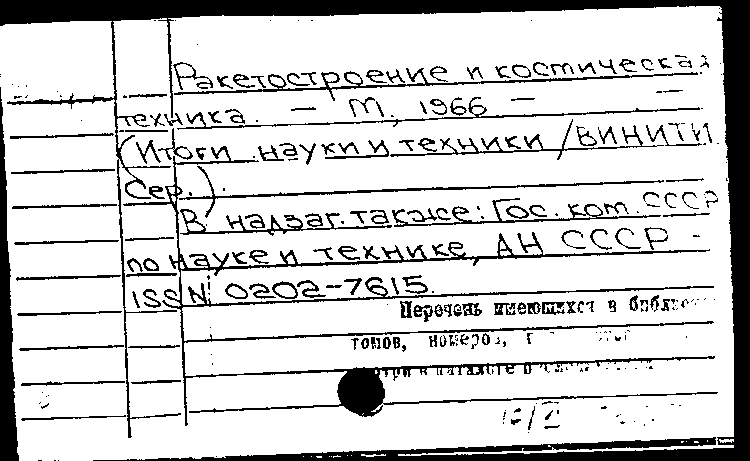 Ракетостроение и космическая
техника. — М., 1966 — —
(Итоги науки и техники / ВИНИТИ
Сер.).
В надзаг. также: Гос. ком. СССР
по науке и технике, АН СССР -
ISSN 0202-7615.
Перечень имеющихся в
томов, номеров,
в каталоге